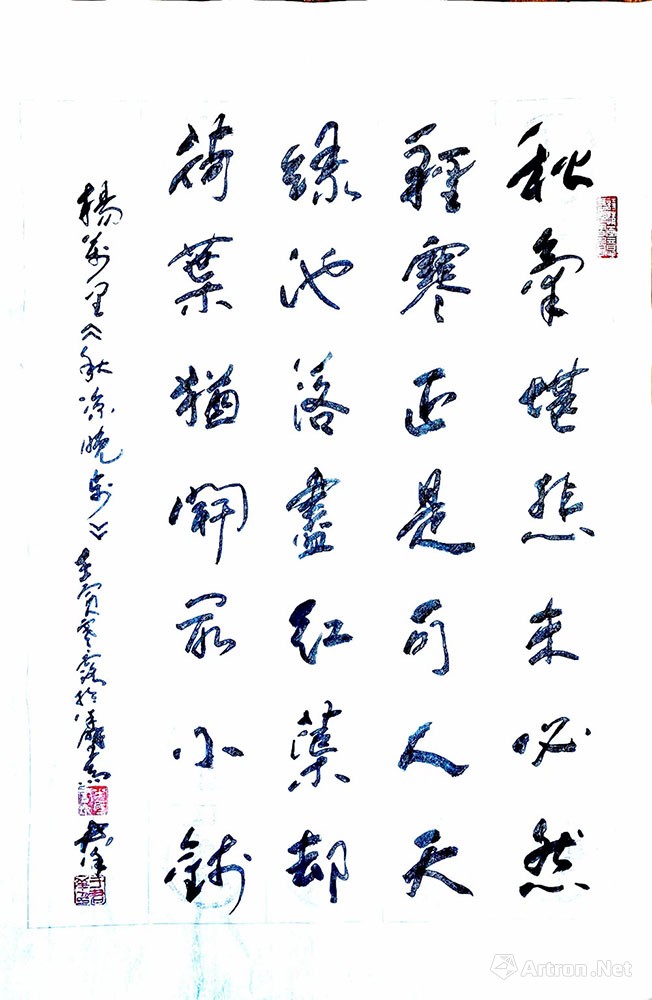 秋氣堪悲未必然
輕寒正是可人天
綠池落盡紅蕖却
荷葉猶開最小錢
楊萬里《秋涼晚步》壬寅寒露於
Artron.Net